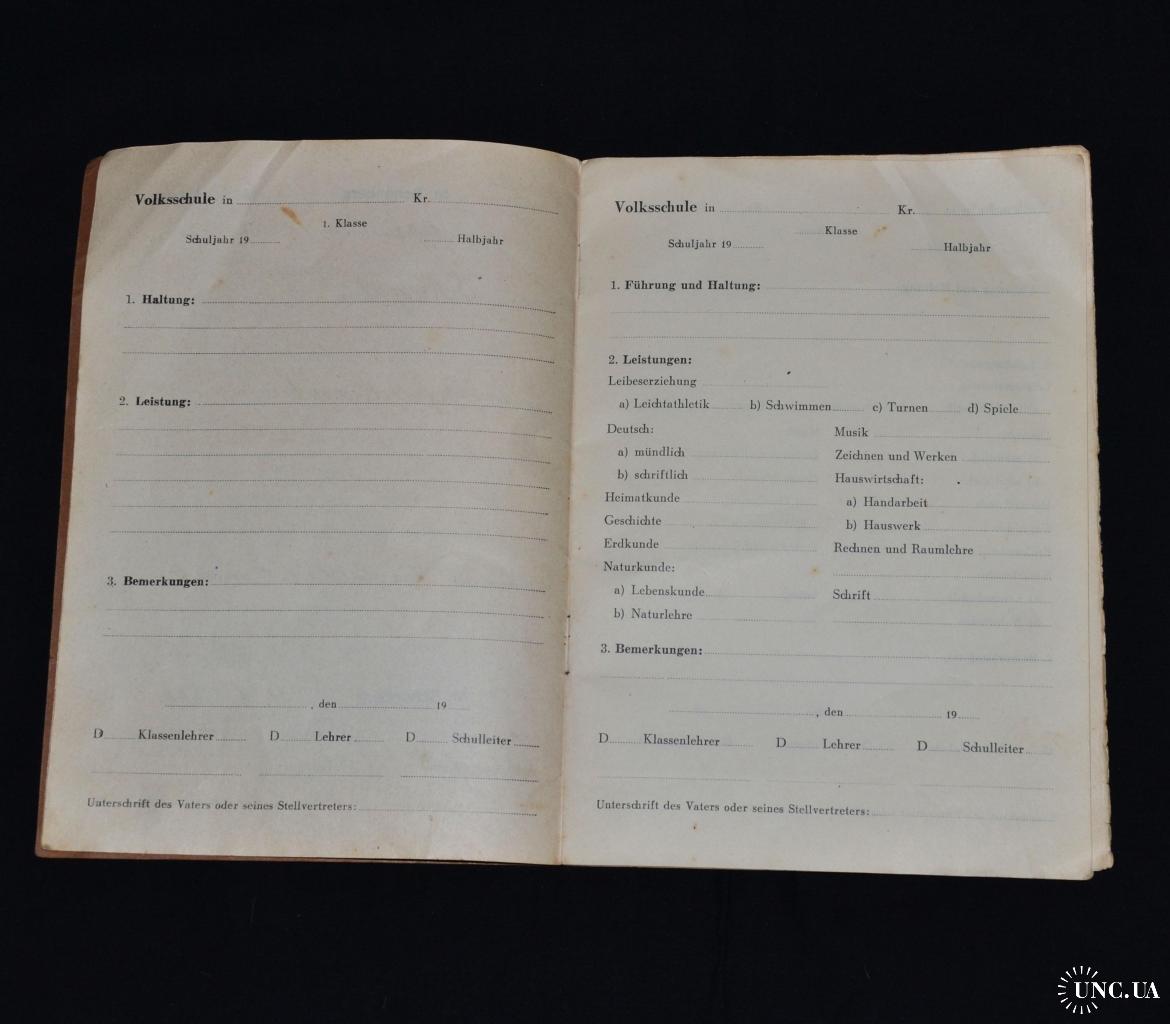 Volksschule in Kr.
1. Klasse
Schuljahr 19 Halbjahr
1. Haltung:
2. Leistung:
3. Bemerkungen:
, den 19
D Klassenlehrer D Lehrer D Schulleiter
Unterschrift des Vaters oder seines Stellvertreters:
Volksschule in Kr.
Klasse
Schuljahr 19 Halbjahr
1. Führung und Haltung:
2. Leistungen:
Leibeserziehung
a) Leichtathletik b) Schwimmen c) Turnen d) Spiele
Deutsch:
a) mündlich
b) schriftlich
Heimatkunde
Geschichte
Erdkunde
Naturkunde:
a) Lebenskunde
b) Naturlehre
Musik
Zeichnen und Werken
Hauswirtschaft:
a) Handarbeit
b) Hauswerk
Rechnen und Raumlehre
Schrift
3. Bemerkungen:
, den 19
D Klassenlehrer D Lehrer D Schulleiter
Unterschrift des Vaters oder seines Stellvertreters:
UNC.UA